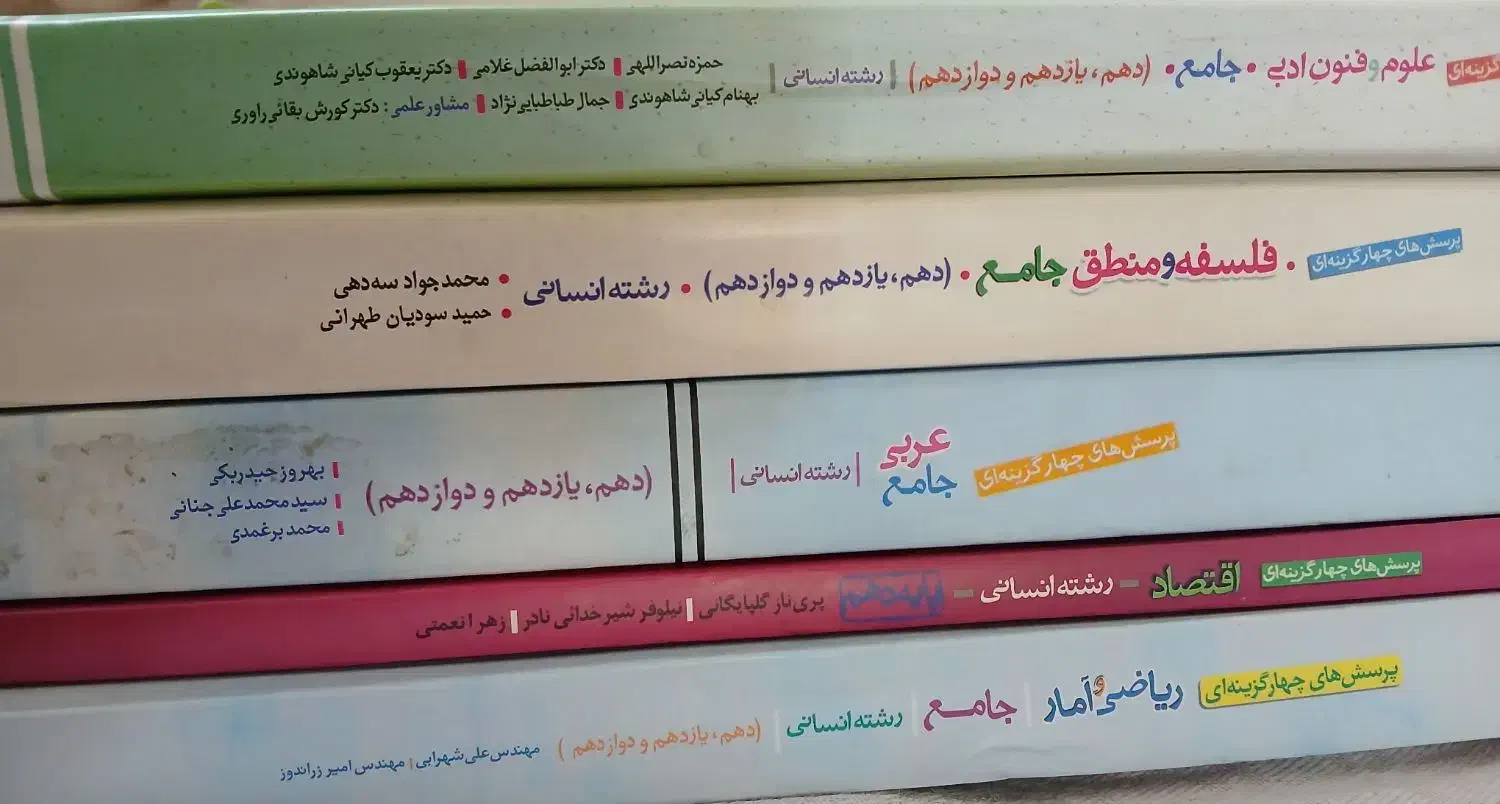 گزینه‌ای علوم و فنون ادبی • جامع • (دهم، یازدهم و دوازدهم) | رشته انسانی |
حمزه نصراللهی | دکتر ابوالفضل غلامی | دکتر یعقوب کیانی شاهوندی
بهنام کیانی شاهوندی | جمال طباطبایی نژاد | مشاور علمی: دکتر کورش بقائی راوری
پرسش‌های چهارگزینه‌ای • فلسفه و منطق جامع • (دهم، یازدهم و دوازدهم) • رشته انسانی
• محمدجواد سه‌دهی
• حمید سودیان طهرانی
پرسش‌های چهارگزینه‌ای
عربی
جامع
| رشته انسانی |
(دهم، یازدهم و دوازدهم)
بهروز حیدربکی
سیدمحمدعلی جنانی
محمد برغمدی
پرسش‌های چهارگزینه‌ای اقتصاد - رشته انسانی - پایه دهم پری‌ناز گلپایگانی | نیلوفر شیرخدائی نادر | زهرا نعمتی
پرسش‌های چهارگزینه‌ای ریاضی و آمار | جامع | رشته انسانی | (دهم، یازدهم و دوازدهم) مهندس علی شهرابی | مهندس امیر زراندوز